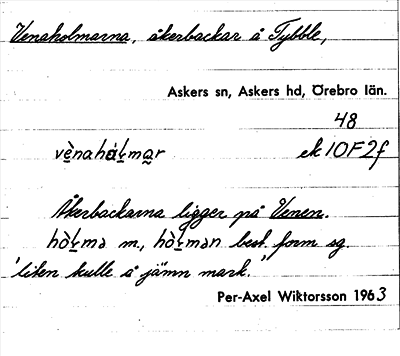 Venaholmarna, åkerbackar å Tybble,
Askers sn, Askers hd, Örebro län.
48
vènahål̠ma̠r ek 10F2f
Åkerbackarna ligger på Venen.
hòl̠mə m., hòl̠mən best. form sg.
'liten kulle å jämn mark.'
Per-Axel Wiktorsson 1963